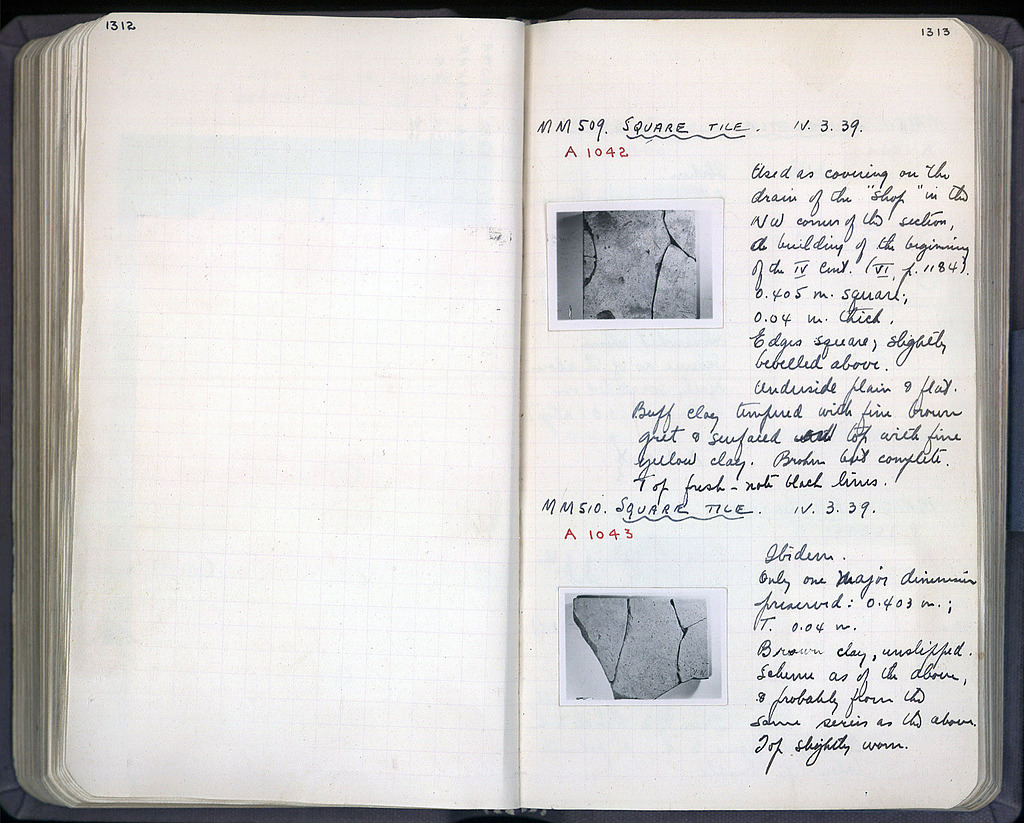 1312
1313
MM 509. SQUARE TILE. IV. 3. 39.
A 1042
Used as covering on the
drain of the "shop" in the
NW corner of the section,
a building of the beginning
of the IV Cent. (VI, p. 1184).
0.405 m. square;
0.04 m. thick.
Edges square; slightly
bevelled above.
Underside plain & flat.
Buff clay tempered with fine brown
grit & surfaced top with fine
yellow clay. Broken but complete.
Top fresh - note black lines.
MM 510. SQUARE TILE. IV. 3. 39.
A 1043
Ibidem.
Only one major dimension
preserved: 0.403 m.;
T. 0.04 m.
Brown clay, unslipped.
Scheme as of the above,
& probably from the
same series as the above.
Top slightly worn.